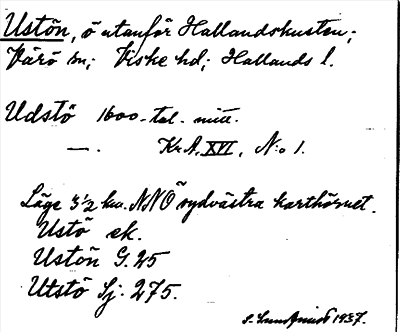 Ustön, ö utanför Hallandskusten;
Värö sn; Viske hd; Hallands l.
Udstö 1600-tal. mitt.
—. Kr.A. XVI, N:o 1.
Läge 3½ km. NNO sydvästra karthörnet.
Ustö ek.
Ustön G. 25
Utstö Sj. 275.
1937.